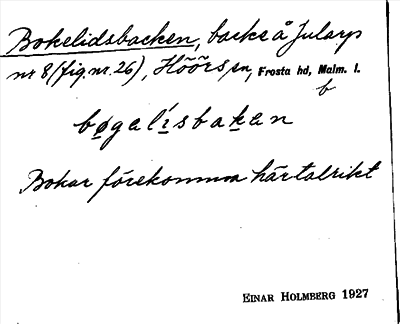 Bokelidsbacken, backe å Jularp
nr 8 (fig. nr. 26), Höörs sn, Frosta hd, Malm. l.
b
bøgalísbakan
Bokar förekomma här talrikt
EINAR HOLMBERG 1927